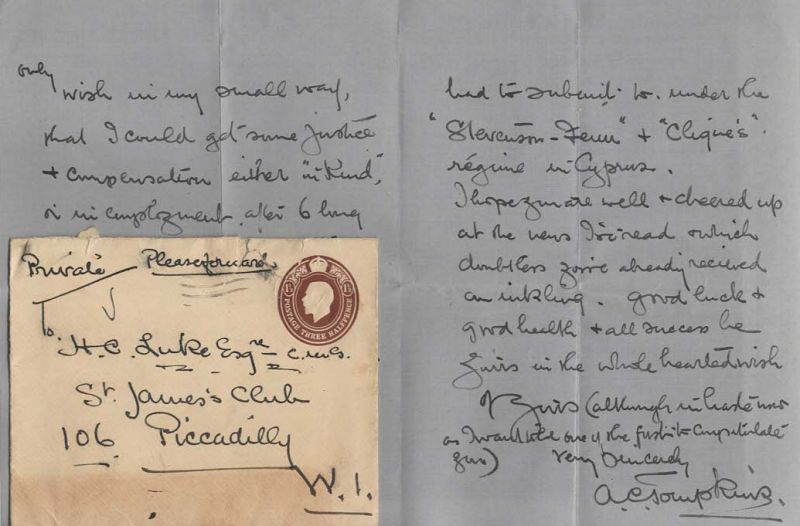 only
wish in my small way,
that I could get some justice
+ compensation either "in kind",
or in employment after 6 long
had to submit to under the
"Stevenson-Fenn" + "Clique's"
régime in Cyprus.
I hope you are well + cheered up
at the news I've read + which
doubtless you've already received
an inkling. Good luck +
good health + all success be
yours in the whole hearted wish
of yours (although in haste now
as I want to be one of the first to congratulate
you) Very Sincerely
A.C. Tompkins.
Private Please forward
POSTAGE THREE HALFPENCE
1½D 1½D
To
H.C. Luke Esqre C.M.G.
St. James's Club
106 Piccadilly
W.1.